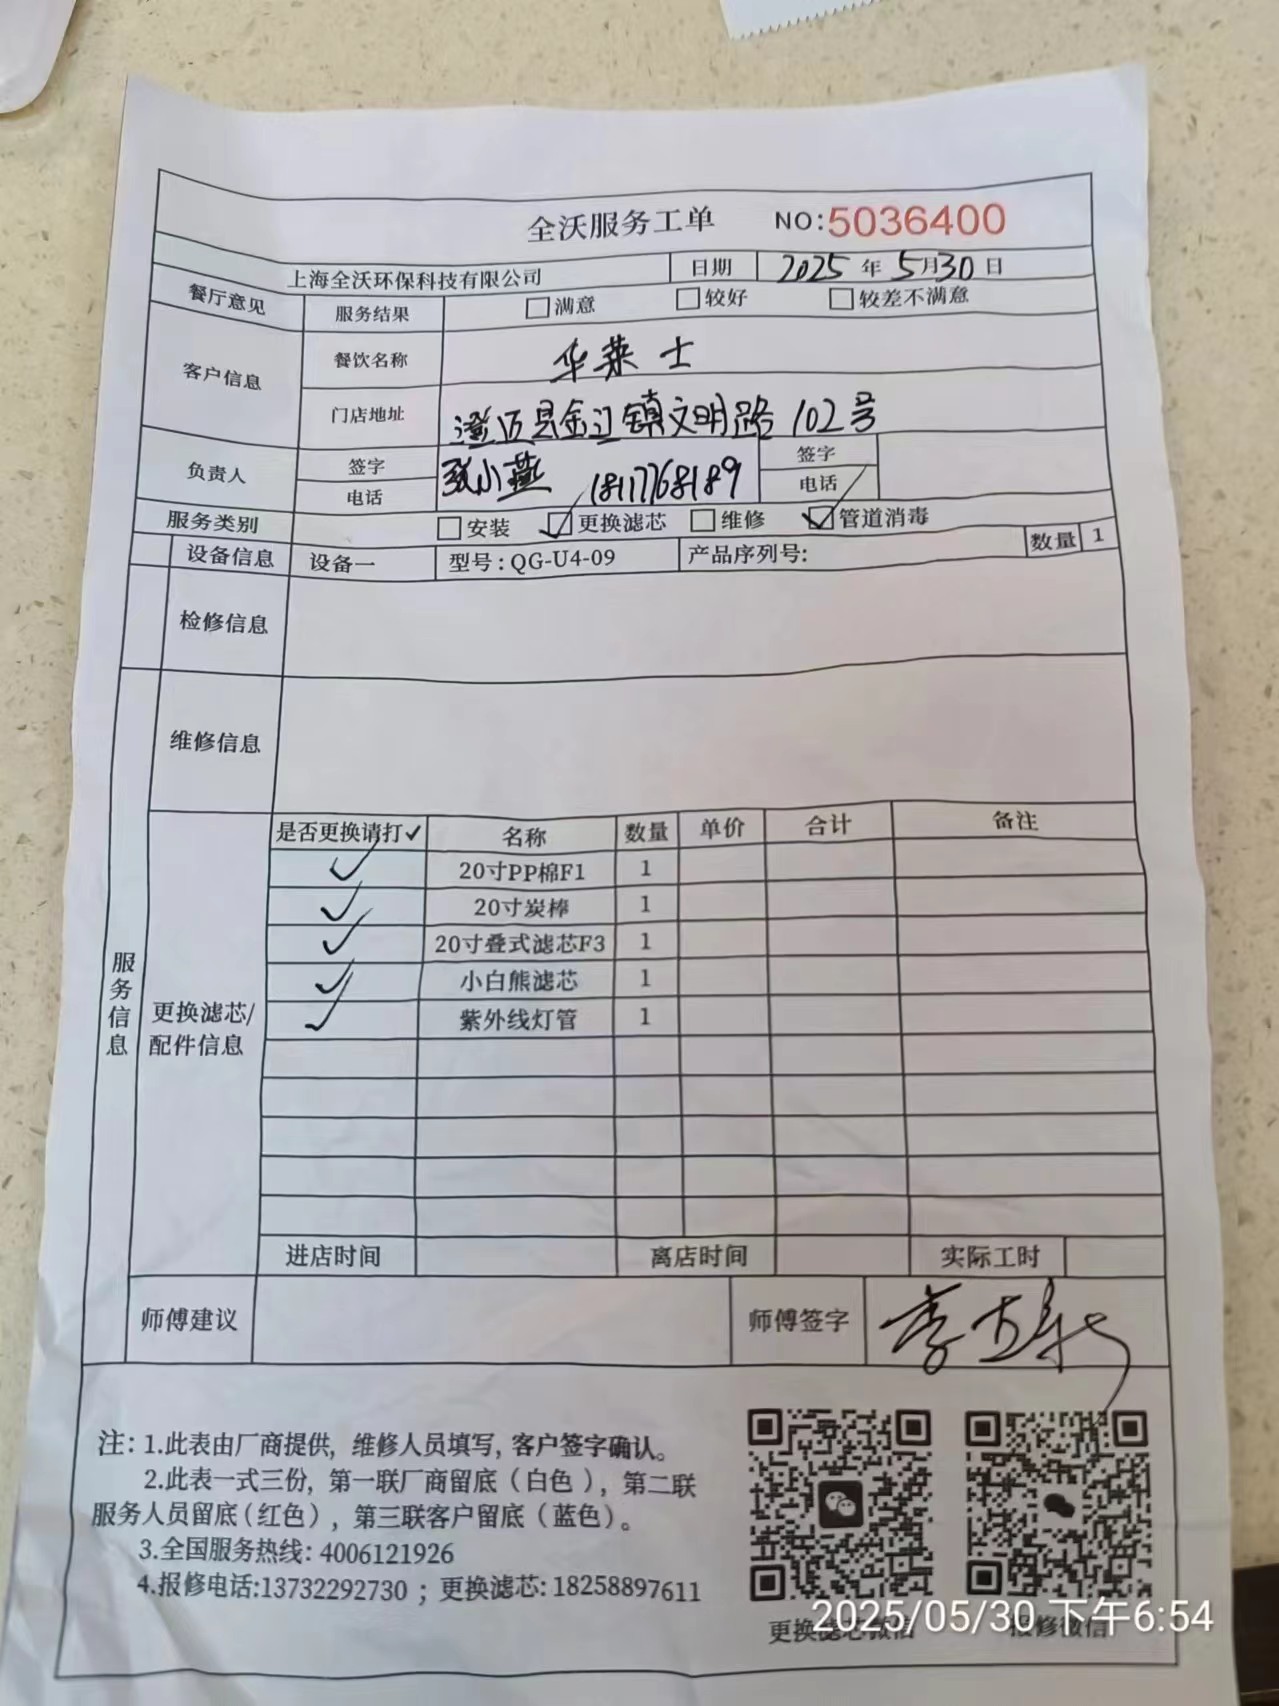 全沃服务工单 NO:5036400
上海全沃环保科技有限公司 日期 2025 年 5月30 日
餐厅意见 服务结果 满意 较好 较差不满意
客户信息 餐饮名称 华莱士
门店地址 澄迈县金江镇文明路102号
负责人 签字 张小燕 签字
电话 18117768189 电话
服务类别 安装 更换滤芯 维修 管道消毒
设备信息 设备一 型号:QG-U4-09 产品序列号: 数量 1
检修信息
维修信息
服务信息
更换滤芯/
配件信息
是否更换请打✓ 名称 数量 单价 合计 备注
✓ 20寸PP棉F1 1
✓ 20寸炭棒 1
✓ 20寸叠式滤芯F3 1
✓ 小白熊滤芯 1
✓ 紫外线灯管 1
进店时间 离店时间 实际工时
师傅建议 师傅签字
注:1.此表由厂商提供,维修人员填写,客户签字确认。
2.此表一式三份,第一联厂商留底(白色),第二联
服务人员留底(红色),第三联客户留底(蓝色)。
3.全国服务热线:4006121926
4.报修电话:13732292730;更换滤芯:18258897611
更换滤芯微信 报修微信
2025/05/30 下午6:54